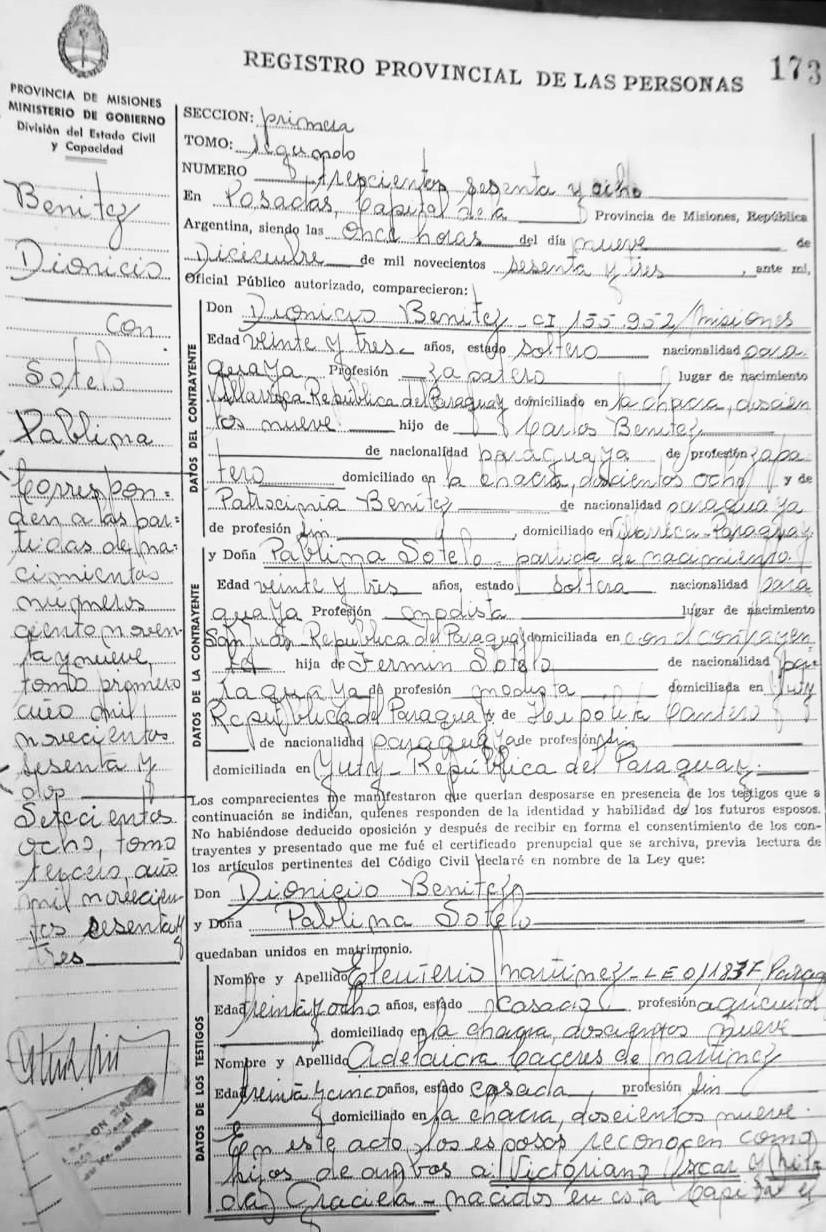 REGISTRO PROVINCIAL DE LAS PERSONAS
173
PROVINCIA DE MISIONES
MINISTERIO DE GOBIERNO
División del Estado Civil
y Capacidad
Benitez
Dionicio
con
Sotelo
Pablina
Correspon=
den a las par=
tidas de na=
cimientos
números
ciento noven
ta y nueve,
tomo primero
año mil
novecientos
sesenta y
dos
Setecientos
ocho, tomo
tercero, año
mil novecien
tos sesenta y
tres
SECCION: primera
TOMO: segundo
NUMERO trescientos sesenta y ocho
En Posadas, Capital de la Provincia de Misiones, República
Argentina, siendo las once horas del día nueve de
Diciembre de mil novecientos sesenta y tres, ante mi,
Oficial Público autorizado, comparecieron:
DATOS DEL CONTRAYENTE
Don Dionicio Benitez - CI 155.952/Misiones
Edad veinte y tres - años, estado soltero nacionalidad para
guaya Profesión zapatero lugar de nacimiento
Villarrica República del Paraguay domiciliado en la chacra, doscien
tos nueve hijo de Carlos Benitez
de nacionalidad paraguaya de profesión zapa
tero domiciliado en la chacra, doscientos ocho y de
Patrocinia Benitez de nacionalidad paraguaya
de profesión sin, domiciliado en Villarrica - Paraguay
DATOS DE LA CONTRAYENTE
y Doña Pablina Sotelo - partida de nacimiento
Edad veinte y tres años, estado soltera nacionalidad para
guaya Profesión modista lugar de nacimiento
San Juan - República del Paraguay domiciliada en con el contrayen
te hija de Fermin Sotelo de nacionalidad pa
raguaya de profesión modista domiciliada en Yuty
República del Paraguay y de Heipolita Cantero
de nacionalidad paraguaya de profesión sin
domiciliada en Yuty - República del Paraguay.
Los comparecientes me manifestaron que querían desposarse en presencia de los testigos que a
continuación se indican, quienes responden de la identidad y habilidad de los futuros esposos.
No habiéndose deducido oposición y después de recibir en forma el consentimiento de los con-
trayentes y presentado que me fué el certificado prenupcial que se archiva, previa lectura de
los artículos pertinentes del Código Civil declaré en nombre de la Ley que:
Don Dionicio Benitez
y Doña Pablina Sotelo
quedaban unidos en matrimonio.
DATOS DE LOS TESTIGOS
Nombre y Apellido Eleuterio Martinez - Parag
Edad treinta y ocho años, estado casado profesión agricultor
domiciliado en la chacra, doscientos nueve
Nombre y Apellido Adelaida Caceres de Martinez
Edad treinta y cinco años, estado casada profesión sin
domiciliado en la chacra, doscientos nueve.
En este acto, los esposos reconocen como
hijos de ambos a: Victoriano Oscar y Nil
da Graciela - nacidos en esta Capital el